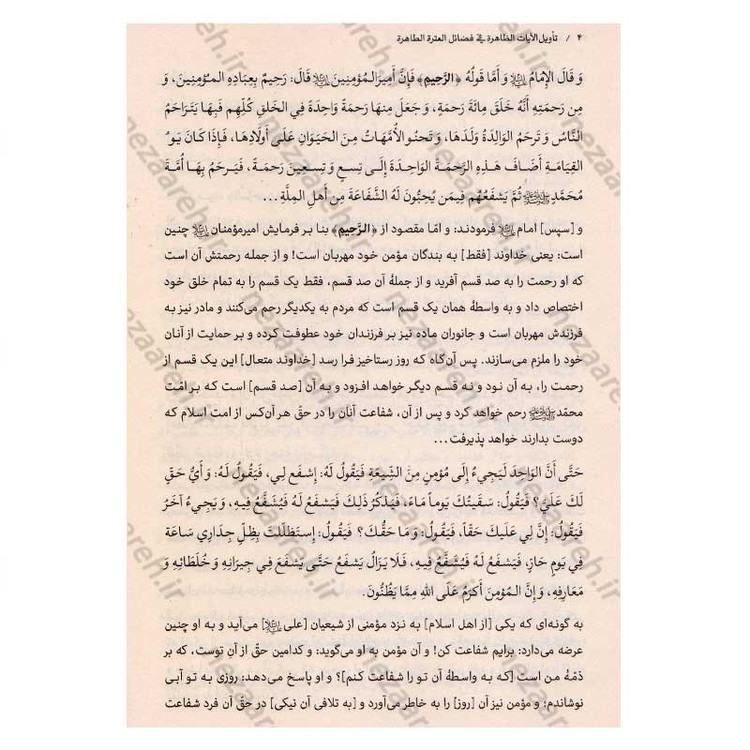 ۴ / تأویل الآیات الظاهرة في فضائل العترة الطاهرة
وَ قَالَ الإِمَامُ ﷷ وَ أَمَّا قَولُهُ ﴿الرَّحِيمِ﴾ فَإِنَّ أَمِيرَالمُؤمِنِينَ ﷷ قَالَ: رَحِيمٌ بِعِبَادِهِ المُؤمِنِينَ، وَ
مِن رَحمَتِهِ أَنَّهُ خَلَقَ مِائَةَ رَحمَةٍ، وَ جَعَلَ مِنهَا رَحمَةً وَاحِدَةً فِي الخَلقِ كُلِّهِم فَبِهَا يَتَرَاحَمُ
النَّاسُ وَ تَرحَمُ الوَالِدَةُ وَلَدَهَا، وَ تَحنُو الأُمَّهَاتُ مِنَ الحَيَوَانِ عَلَى أَولَادِهَا، فَإِذَا كَانَ يَومُ
القِيَامَةِ أَضَافَ هَذِهِ الرَّحمَةَ الوَاحِدَةَ إِلَى تِسعٍ وَ تِسعِينَ رَحمَةً، فَيَرحَمُ بِهَا أُمَّةَ
مُحَمَّدٍ ﷺ ثُمَّ يَشفَعُهُم فِيمَن يُحِبُّونَ لَهُ الشَّفَاعَةَ مِن أَهلِ المِلَّةِ ...
و [سپس] امام ﷷ فرمودند: و امّا مقصود از ﴿الرَّحِیمِ﴾ بنا بر فرمایش امیرمؤمنان ﷷ چنین
است: یعنی خداوند [فقط] به بندگان مؤمن خود مهربان است! و از جمله رحمتش آن است
که او رحمت را به صد قسم آفرید و از جملهٔ آن صد قسم، فقط یک قسم را به تمام خلق خود
اختصاص داد و به واسطهٔ همان یک قسم است که مردم به یکدیگر رحم می‌کنند و مادر نیز به
فرزندش مهربان است و جانوران ماده نیز بر فرزندان خود عطوفت کرده و بر حمایت از آنان
خود را ملزم می‌سازند. پس آن‌گاه که روز رستاخیز فرا رسد [خداوند متعال] این یک قسم از
رحمت را، به آن نود و نه قسم دیگر خواهد افزود و به آن [صد قسم] است که بر امّت
محمّد ﷺ رحم خواهد کرد و پس از آن، شفاعت آنان را در حقّ هر آن‌کس از امت اسلام که
دوست بدارند خواهد پذیرفت...
حَتَّى أَنَّ الوَاحِدَ لَيَجِيءُ إِلَى مُؤمِنٍ مِنَ الشِّيعَةِ فَيَقُولُ لَهُ: إِشفَع لِي، فَيَقُولُ لَهُ: وَ أَيُّ حَقٍّ
لَكَ عَلَيَّ؟ فَيَقُولُ: سَقَيتُكَ يَوماً مَاءً، فَيَذكُرُ ذَلِكَ فَيَشفَعُ لَهُ فَيُشَفَّعُ فِيهِ، وَ يَجِيءُ آخَرُ
فَيَقُولُ: إِنَّ لِي عَلَيكَ حَقّاً، فَيَقُولُ: وَ مَا حَقُّكَ؟ فَيَقُولُ: إِستَظلَلتَ بِظِلِّ جِدَارِي سَاعَةً
فِي يَومٍ حَارٍّ، فَيَشفَعُ لَهُ فَيُشَفَّعُ فِيهِ، فَلَا يَزَالُ يَشفَعُ حَتَّى يَشفَعَ فِي جِيرَانِهِ وَ خُلَطَائِهِ وَ
مَعَارِفِهِ، وَ إِنَّ المُؤمِنَ أَكرَمُ عَلَى اللهِ مِمَّا يَظُنُّونَ.
به گونه‌ای که یکی [از اهل اسلام] به نزد مؤمنی از شیعیان [علی ﷷ] می‌آید و به او چنین
عرضه می‌دارد: برایم شفاعت کن! و آن مؤمن به او می‌گوید: و کدامین حقّ از آنِ توست، که بر
ذمّهٔ من است [که به واسطهٔ آن تو را شفاعت کنم]؟ و او پاسخ می‌دهد: روزی به تو آبی
نوشاندم؛ و مؤمن نیز آن [روز] را به خاطر می‌آورد و [به تلافی آن نیکی] در حقّ آن فرد شفاعت
nezaareh.ir